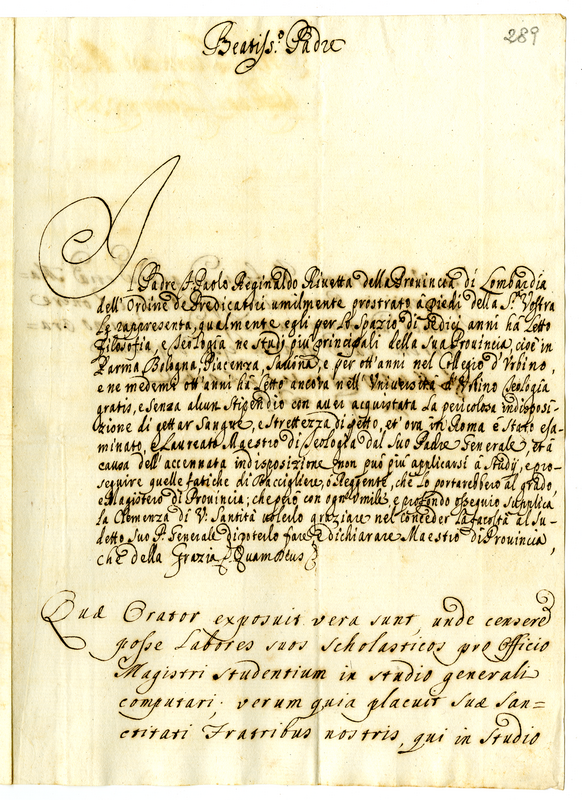 289
Beatiss.º Padre
Il Padre f. Paolo Reginaldo Rivetta della Provincia di Lombardia
dell'Ordine de Predicatori umilmente prostrato à piedi della S.ᵗᵃ Vostra
Le rappresenta, qualmente egli per lo spazio di sedici anni hà letto
Filosofia, e Teologia ne Studi più principali della Sua Provincia, cioè in
Parma, Bologna, Piacenza, Faenza, e per ott'anni nel Collegio d'Urbino,
e ne medemi ott'anni hà letto ancora nell'Università d'Urbino Teologia
gratis, e senza alcun Stipendio con aver acquistata la pericolosa indisposi-
zione di gettar Sangue, e Strettezza di petto, et' ora in Roma è Stato esa-
minato, e Laureato Maestro di Teologia dal Suo Padre Generale, et à
causa dell'accennata indisposizione non può più applicarsi à Studj, e pro-
seguire quelle fatiche di Baccigliere, ò Reggente, che lo portarebbero al grado,
e Magistero di Provincia; che però con ogni umile, e profondo ossequio supplica
la Clemenza di V: Santità volerlo graziare nel conceder la facoltà al Su-
detto Suo P. Generale di poterlo fare, e dichiarare Maestro di Provincia,
che della Grazia Quam Deus
Quæ Orator exposuit vera sunt, unde censere
posse Labores suos scholasticos pro Officio
Magistri studentium in studio generali
computari; verum quia placuit suæ San=
ctitati Fratribus nostris, qui in studio